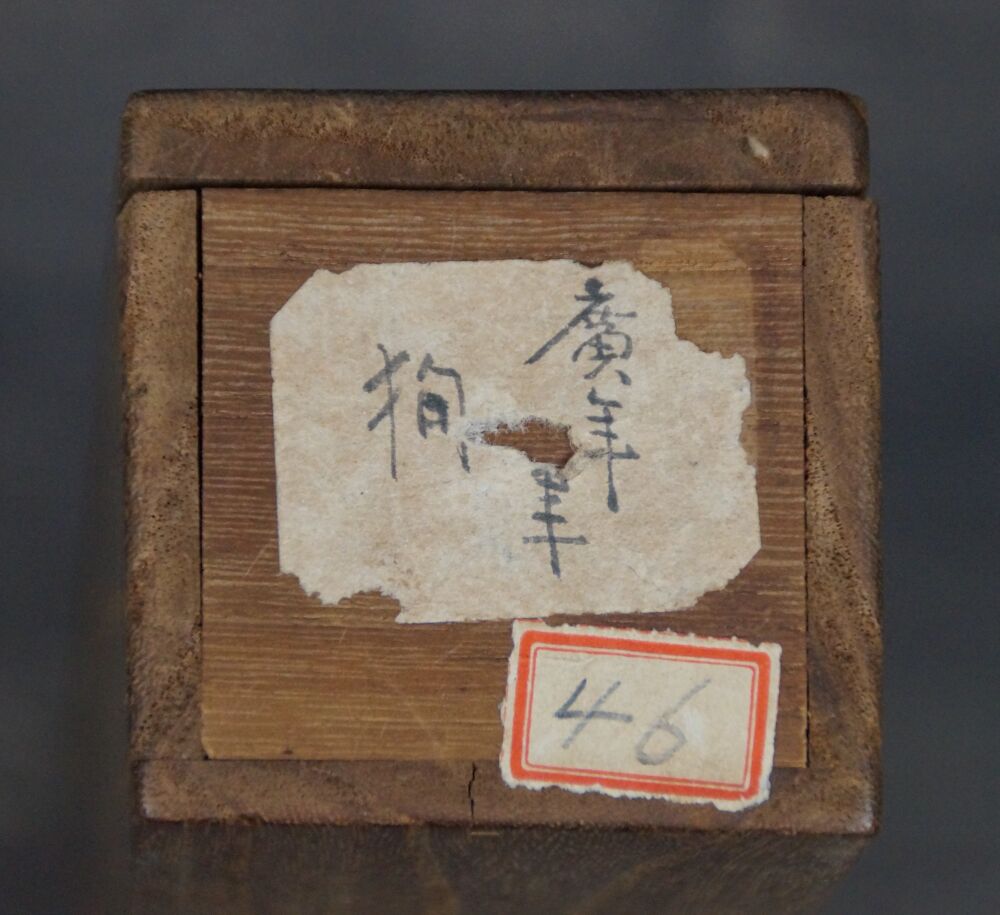 廣年
羊
狗
46